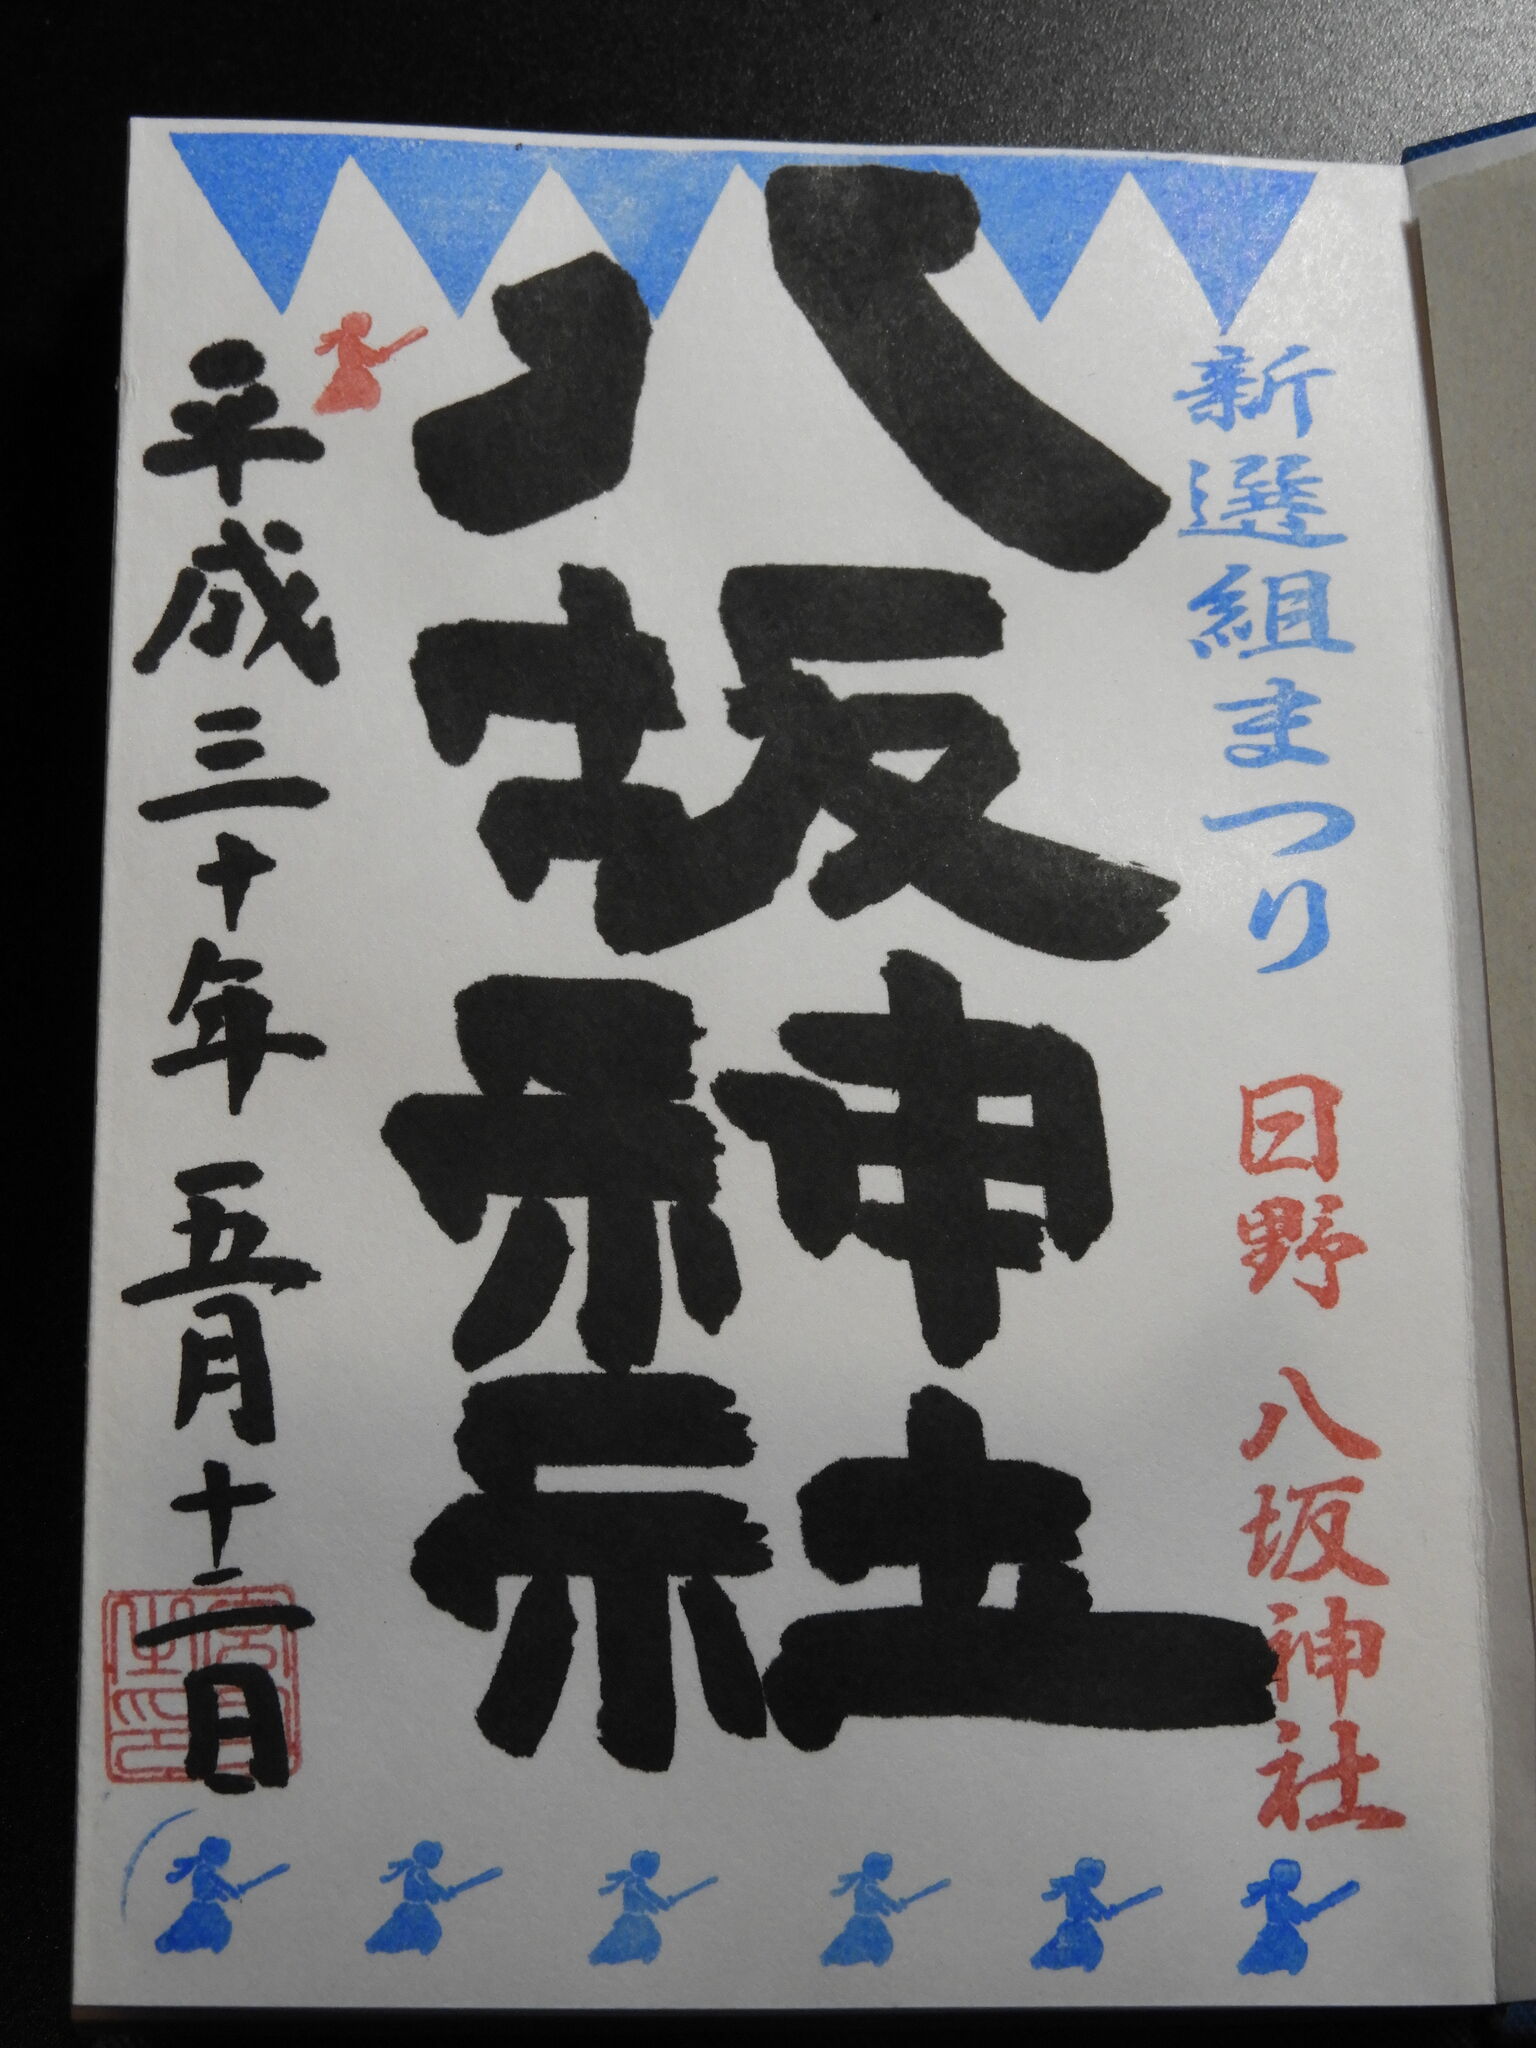 新選組まつり
日野 八坂神社
八坂神社
平成三十年 五月十二日